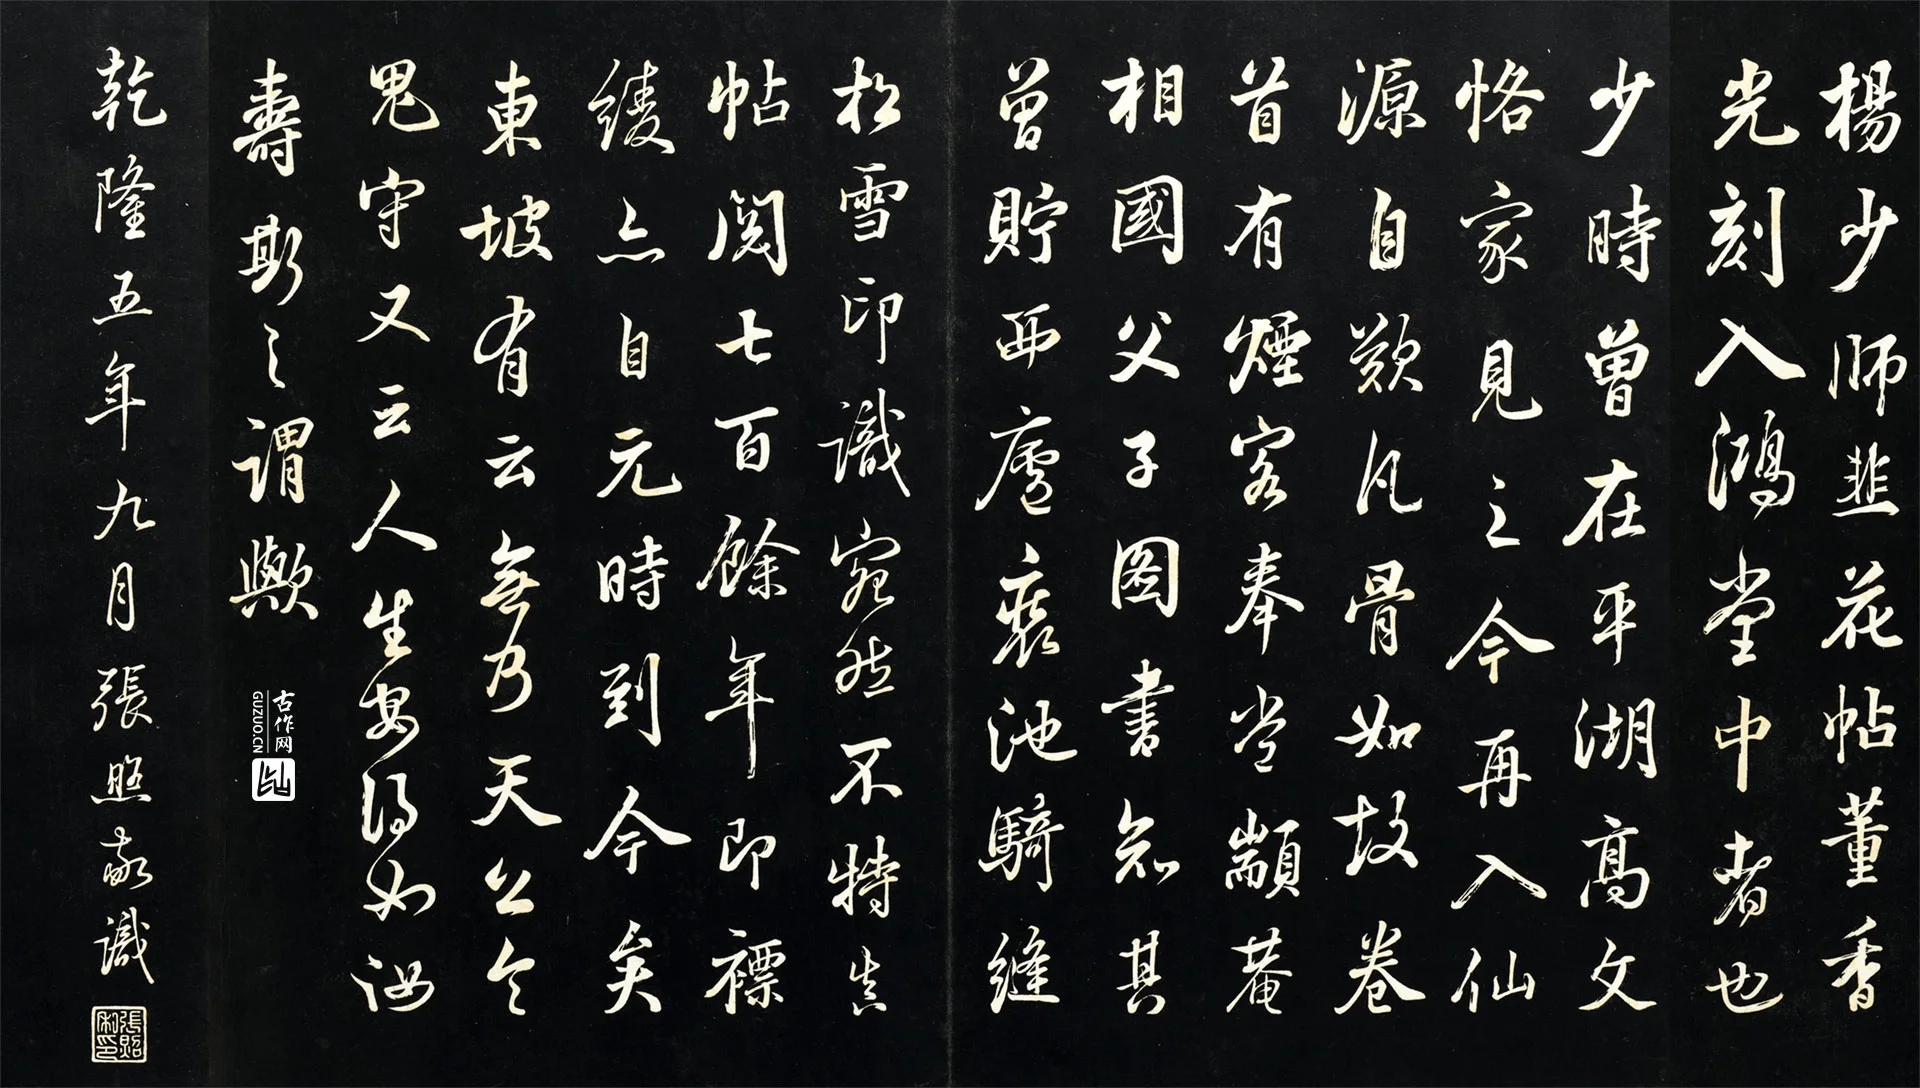 楊少師韭花帖董香
光刻入鴻堂中者也
少時曾在平湖高文
恪家見之今再入仙
源自歎凡骨如故卷
首有煙客奉常顓菴
相國父子图書知其
曾貯西廬池騎縫
松雪印識宛然不特真
帖閱七百餘年即褾
綾亦自元時到今矣
東坡有云無乃天公令
鬼守又云人生安得如汝
壽斯之謂歟
古作网
GUZUO.CN
乾隆五年九月張照敬識